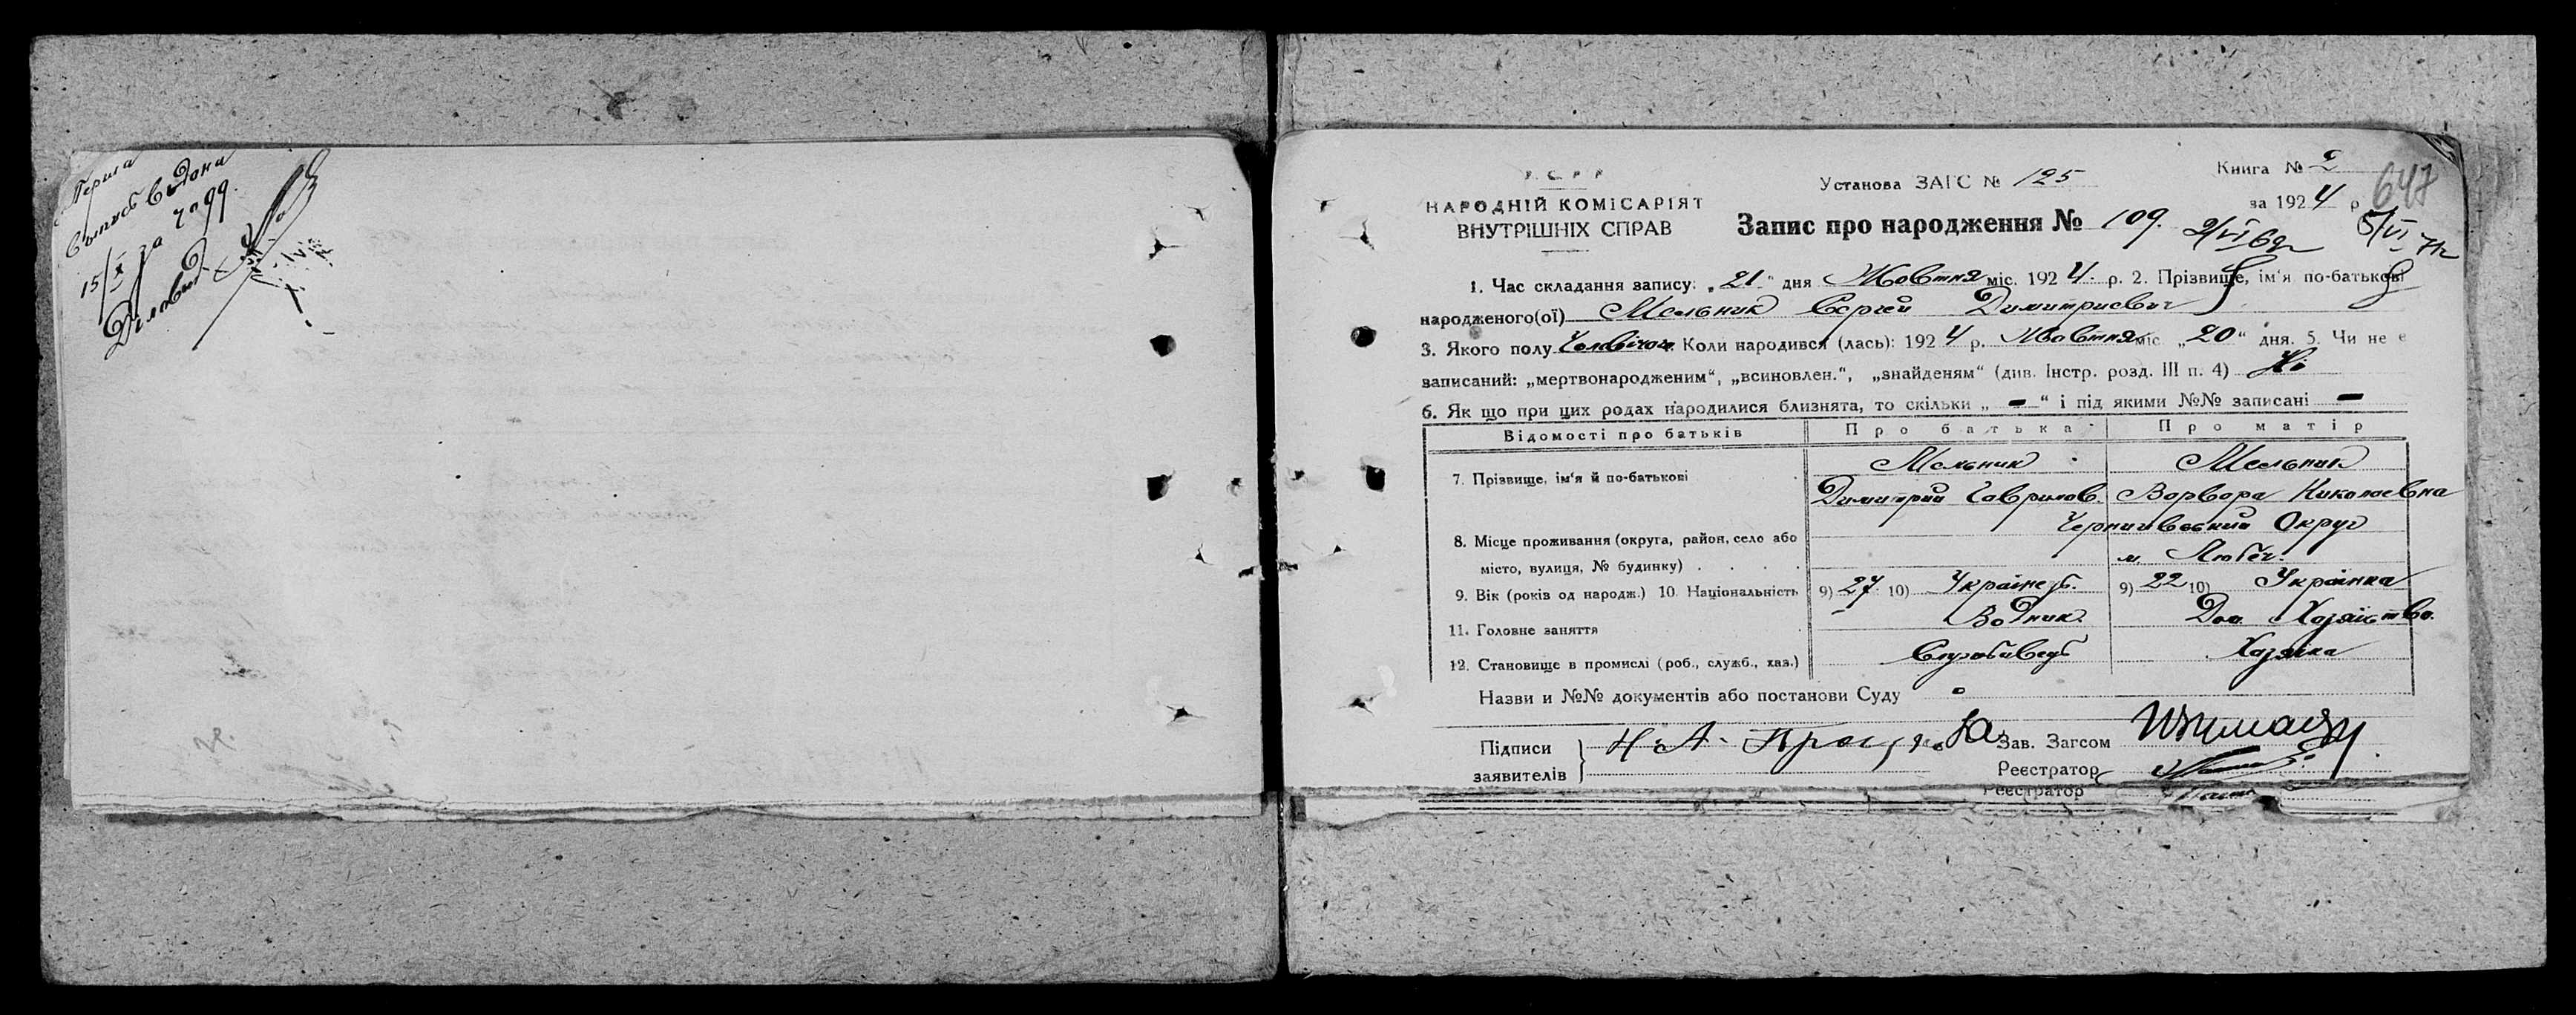 Перша
выпись выдана
15/X за № 99.
У.С.Р.Р.
НАРОДНІЙ КОМІСАРІЯТ
ВНУТРІШНІХ СПРАВ
Установа ЗАГС № 125
Книга № 2
за 1924 р
647
Запис про народження № 109.
2/VI 62
5/VI
1. Час складання запису: „21“ дня Жовтня міс. 1924 р. 2. Прізвище, ім'я по-батькові
народженого(ої) Мельник Сергей Димитриевич
3. Якого полу Чоловічого. Коли народився (лась): 1924 р. Жовтня міс „20“ дня. 5. Чи не е
записаний: „мертвонародженим“, „всиновлен.“, „знайденям“ (див. Інстр. розд. III п. 4) Ні
6. Як що при цих родах народилися близнята, то скільки „ — “ і під якими №№ записані —
Відомості про батьків Про батька Про матір
7. Прізвище, ім'я й по-батькові
Мельник Мельник
Димитрий Гаврилов. Варвара Николаевна
8. Місце проживання (округа, район, село або
місто, вулиця, № будинку)
Черниговский Округ
м. Любеч.
9. Вік (років од народж.) 10. Національність 9) 27 10) Українец. 9) 22 10) Українка
11. Головне заняття Водник Дом. Хазяйство.
12. Становище в промислі (роб., служб., хаз.) Службовец Хазяйка
Назви и №№ документів або постанови Суду
Підписи
заявителів
Н. А.
Зав. Загсом
Реєстратор
Реєстратор